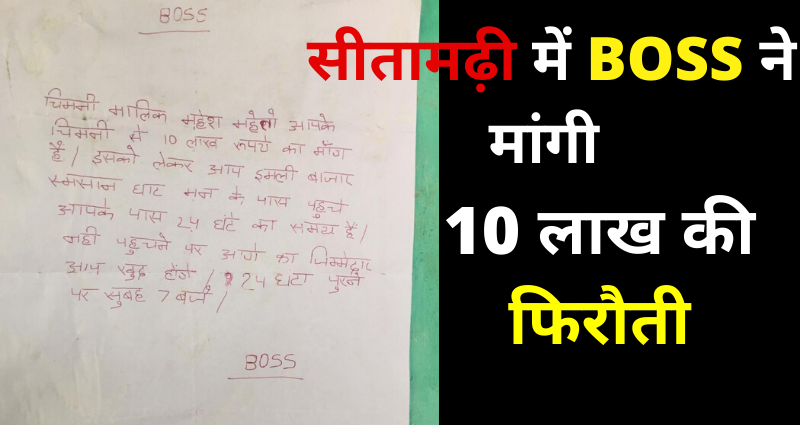 BOSS
चिमनी मालिक महेश महतो आपके
चिमनी से 10 लाख रूपये का माँग
हैं / इसको लेकर आप इमली बाजार
स्मसान घाट मन के पास पहुचे
आपके पास 24 घंटे का समय हैं /
नही पहुचने पर आगे का जिम्मेदार
आप खुद होंगे / 24 घंटा पुरने
पर सुबह 7 बजे /
BOSS
सीतामढ़ी में BOSS ने
मांगी
10 लाख की
फिरौती